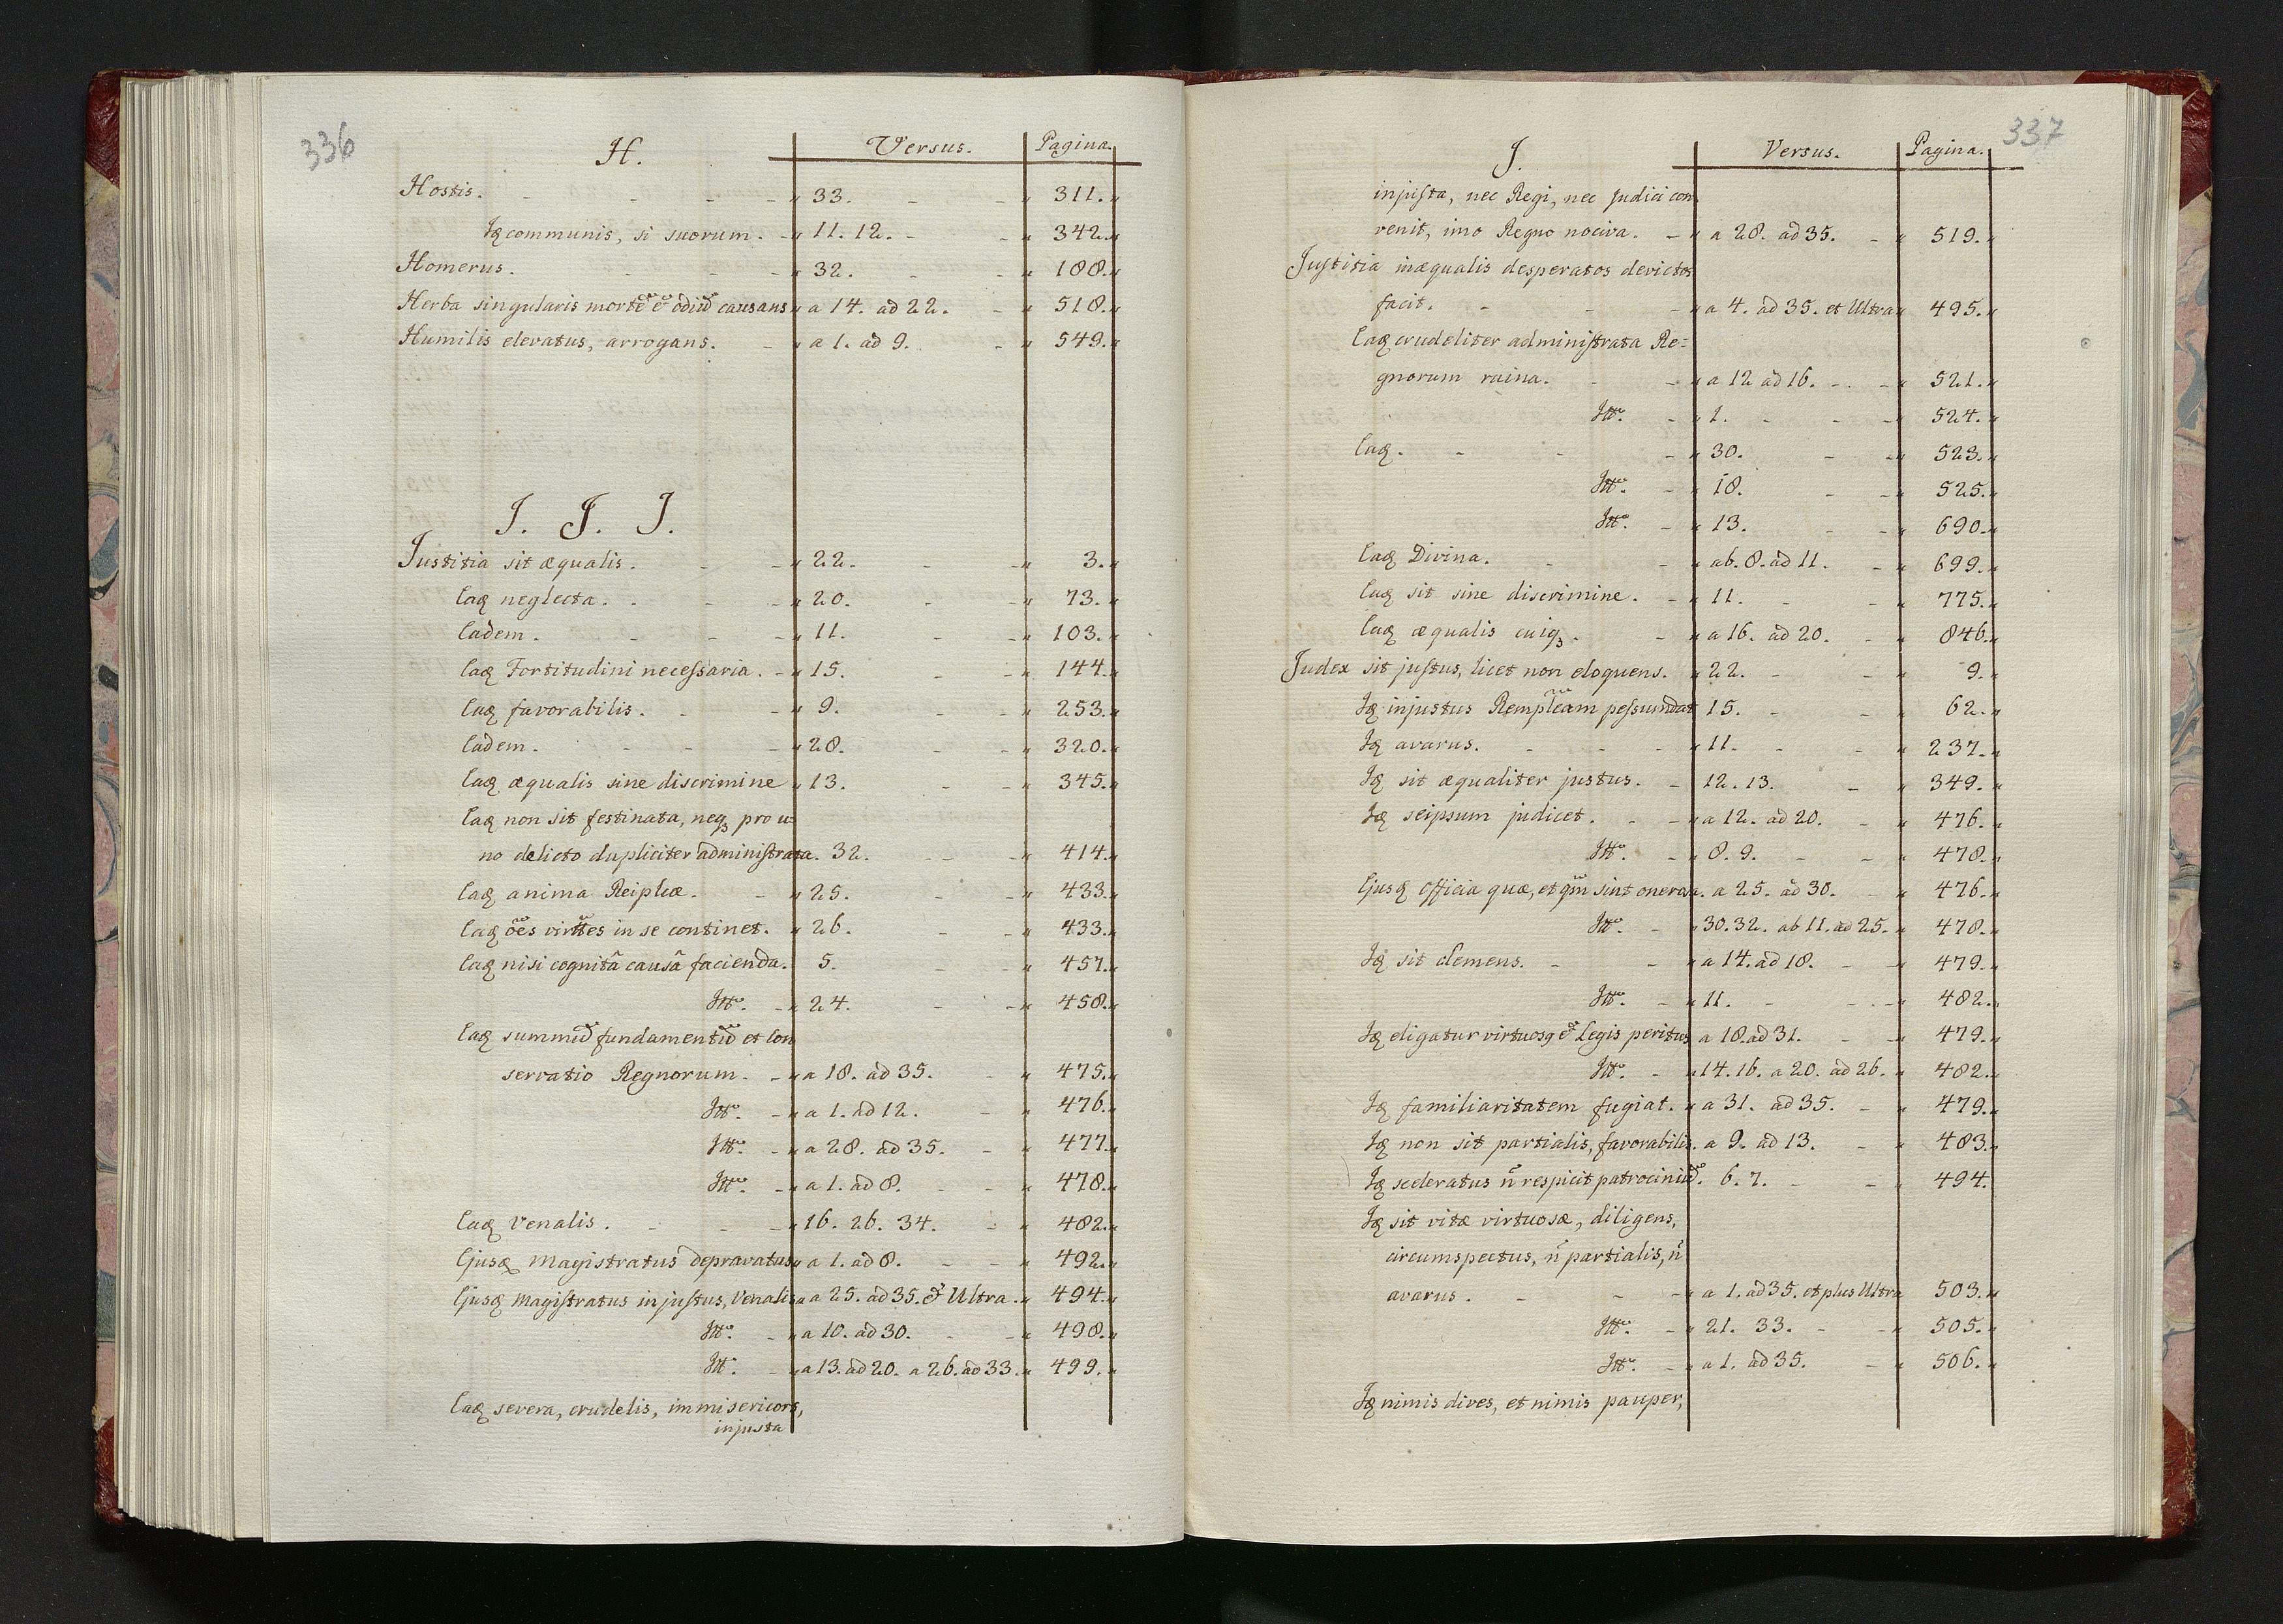 336
H. Versus. Pagina.
Hostis. 33. 311.
Idq communis, si suorum. 11. 12. 342.
Homerus. 32. 188.
Herba singularis mortẽ & odiũ causans a 14. ad 22. 518.
Humilis elevatus, arrogans. a 1. ad 9. 549.
J. J. J.
Justitia sit æqualis. 22. 3.
Eaq neglecta. 20. 73.
Eadem. 11. 103.
Eaq Fortitudini necessaria. 15. 144.
Eaq favorabilis. 9. 253.
Eadem. 28. 320.
Eaq æqualis sine discrimine 13. 345.
Eaq non sit festinata, neq3 pro u=
no delicto dupliciter administrata. 32. 414.
Eaq anima Reiplicæ. 25. 433.
Eaq oẽs virttes in se continet. 26. 433.
Eaq nisi cognitâ causâ facienda. 5. 457.
Itt. 24. 458.
Eaq summũ fundamentũ et Con
servatio Regnorum. a 18. ad 35. 475.
Itt. a 1. ad 12. 476.
Itt. a 28. ad 35. 477.
Itt. a 1. ad 8. 478.
Eaq venalis. 16. 26. 34. 482.
Ejusq Magistratus depravatus a 1. ad 8. 492.
Ejusq Magistratus injustus, Venalis a 25. ad 35. & Ultra. 494.
Itt. a 10. ad 30. 498.
Itt. a 13. ad 20. a 26. ad 33. 499.
Eaq severa, crudelis, immisericors,
injusta
337
J. Versus. Pagina.
injusta, nec Regi, nec Judici con
venit, imo Regno nociva. a 28. ad 35. 519.
Justitia inæqualis desperatos devictos
facit. a 4. ad 35. et Ultra 495.
Eaq crudeliter administrata Re=
gnorum ruina. a 12 ad 16. 521.
Itt. 1. 524.
Eaq. 30. 523.
Itt. 18. 525.
Itt. 13. 690.
Eaq Divina. ab. 8. ad 11. 699.
Eaq sit sine discrimine. 11. 775.
Eaq æqualis cuiq3. a 16. ad 20. 846.
Judex sit justus, licet non eloquens. 22. 9.
Iq injustus Remplicam pessundat 15. 62.
Iq avarus. 11. 237.
Iq sit æqualiter justus. 12. 13. 349.
Iq seipsum judicet. a 12. ad 20. 476.
Itt. 8. 9. 478.
Ejusq officia quæ, et qm sint onerosa. a 25. ad 30. 476.
Itt. 30. 32. ab 11. ad 25. 478.
Iq sit clemens. a 14. ad 18. 479.
Itt. 11. 482.
Iq eligatur virtuosq & Legis peritus a 18. ad 31. 479.
Itt. 14. 16. a 20. ad 26. 482.
Iq familiaritatem fugiat. a 31. ad 35. 479.
Iq non sit partialis, favorabilis. a 9. ad 13. 483.
Iq sceleratus ñ respicit patrociniũ. 6. 7. 494.
Iq sit vitæ virtuosæ, diligens,
circumspectus, ñ partialis, ñ
avarus. a 1. ad 35. et plus Ultra 503.
Itt. 21. 33. 505.
Itt. a 1. ad 35. 506.
Iq nimis dives, et nimis pauper,